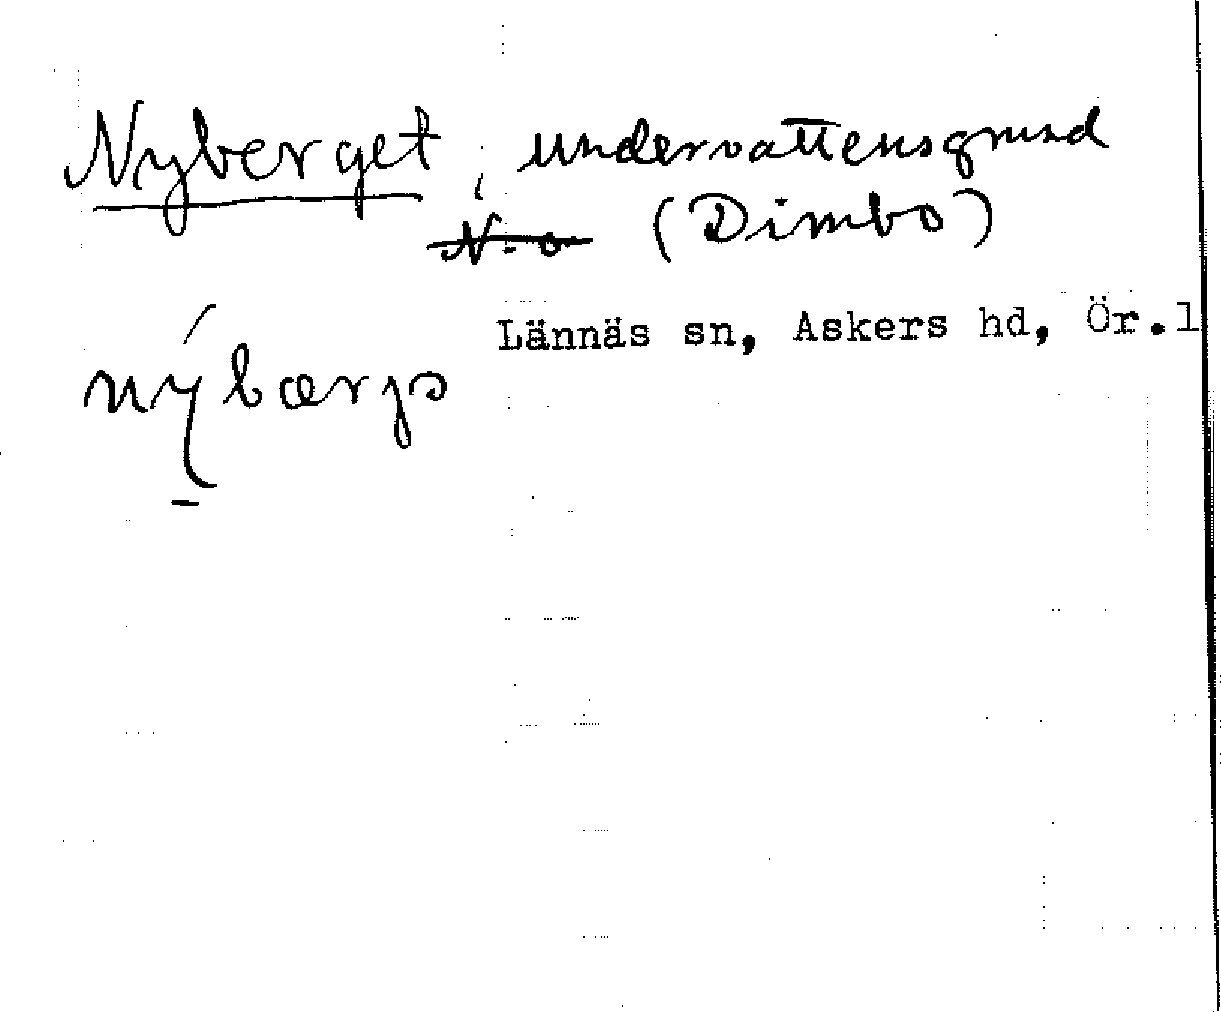 Nyberget, undervattensgrund
N. o (Dimbo)
Lännäs sn, Askers hd, Ör.l